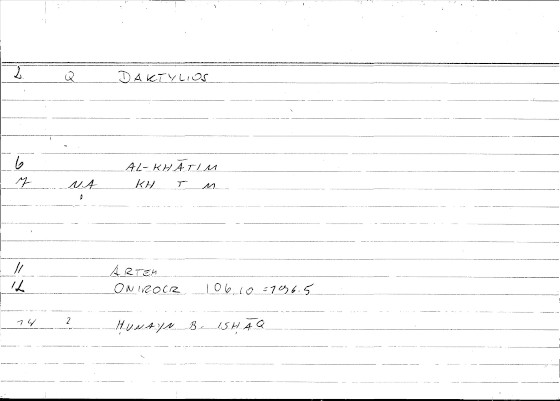 2 Q DAKTYLIOS
6 AL-KHĀTIM
7 NA KH T M
11 ARTEM
12 ONIROCR 106.10 =196.5
14 2 ḤUNAYN B. ISḤĀQ